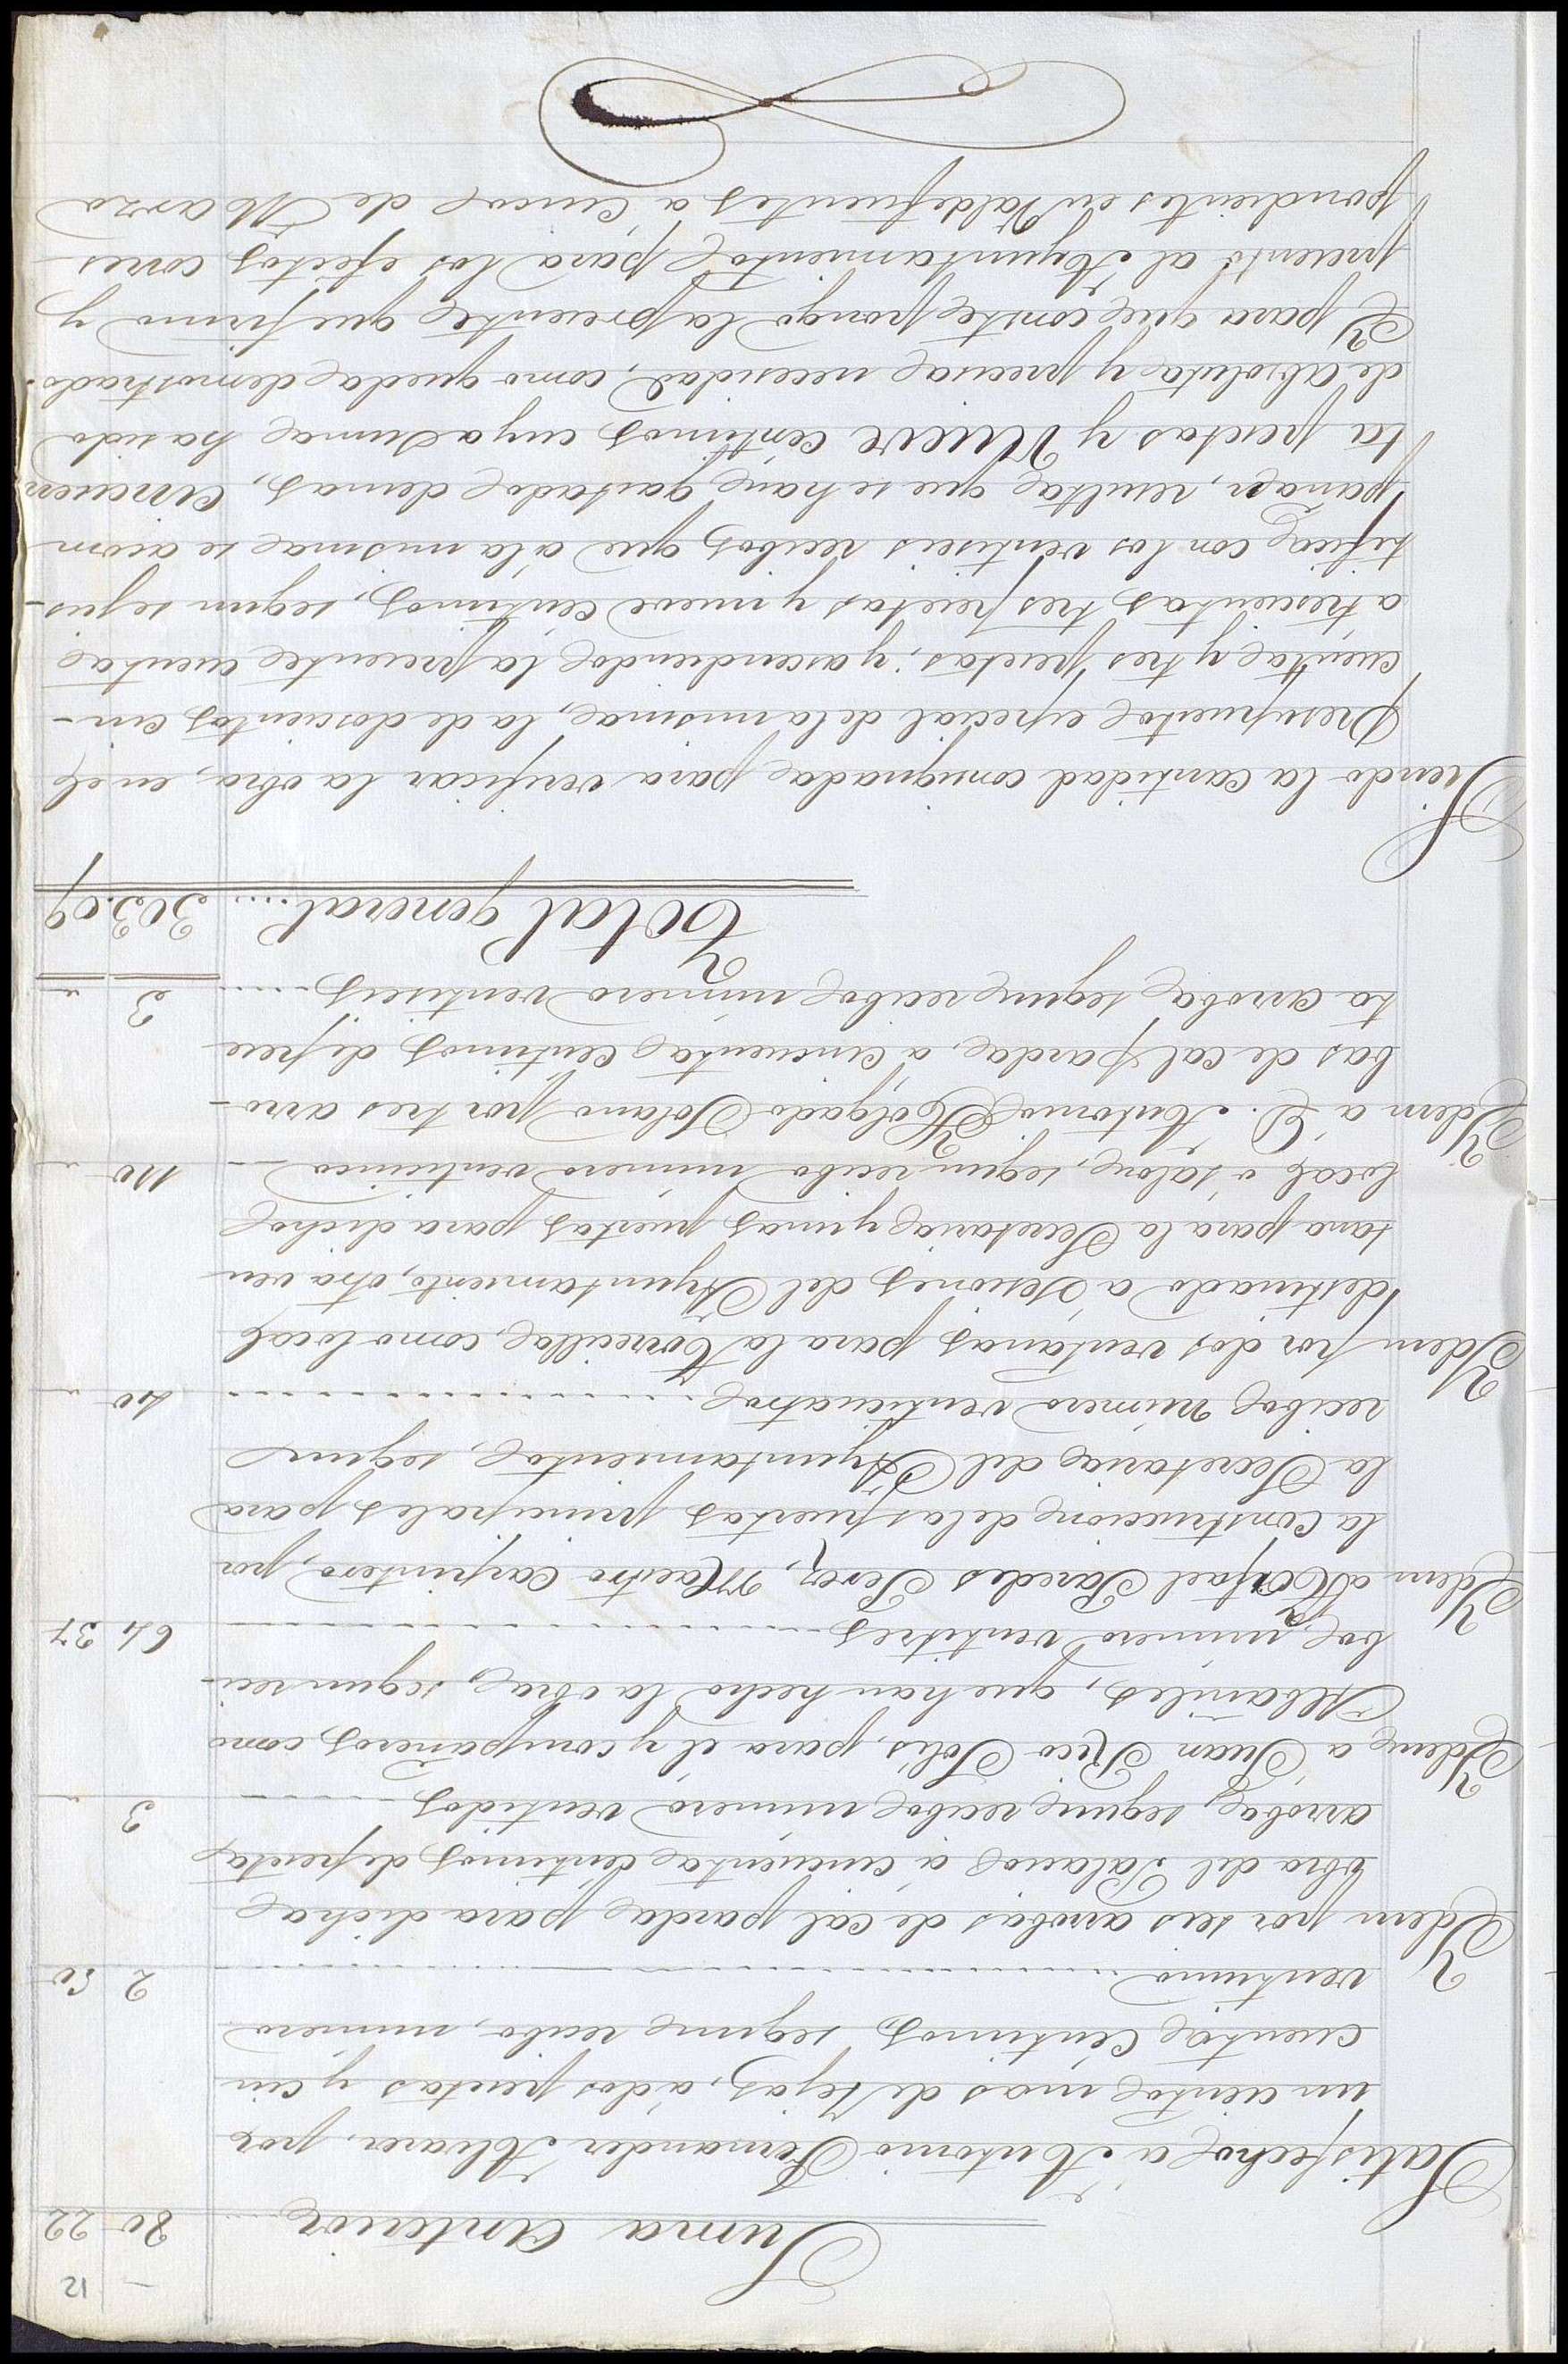 12
Suma anterior 80 22
Satisfecho a Antonio Fernander Alvarer, por
un ciento mas de tejas, á dos pesetas y cin
cuenta céntimos, segun recibo, número
ventiuno 2 50
Ydem por seis arrobas de cal parda para dicha
obra del Palacio á cincuenta céntimos de peseta
arroba, segun recibo número ventidos 3 "
Ydem á Juan Rico Solis, para él y compañeros, como
Albañiles, que han hecho la obra, segun reci-
bo, número ventitres 64 37
Ydem a Rafael Paredes Perez, Maestro carpintero, por
la construccion de las puertas principales para
la Secretaria del Ayuntamiento, segun
recibo número venticuatro 40 "
Ydem por dos ventanas para la Torrecilla, como local
destinado á sesiones del Ayuntamiento, otra ven
tana para la Secretaria y unas puertas para dicho
local ó salon, segun recibo número venticinco 110 "
Ydem á D. Antonio Holgado Solano por tres arro-
bas de cal parda, á cincuenta céntimos de pese
ta arroba, segun recibo número ventiseis 3 "
Total general... 303.09
Siendo la cantidad consignada para verificar la obra, en el
Presupuesto especial de la misma, la de doscientas cin-
cuenta y tres pesetas; y ascendiendo la presente cuenta
a trescientas tres pesetas y nueve céntimos, segun se jus-
tifica con los ventiseis recibos que á la misma se acom
pañan, resulta que se han gastado demas, cincuen
ta pesetas y Nueve céntimos cuya suma ha sido
de absoluta y precisa necesidad, como queda demostrado.
Y para que conste pongo la presente que firmo y
presento al Ayuntamiento para los efectos corres-
pondientes en Valdefuentes a cinco de Marzo